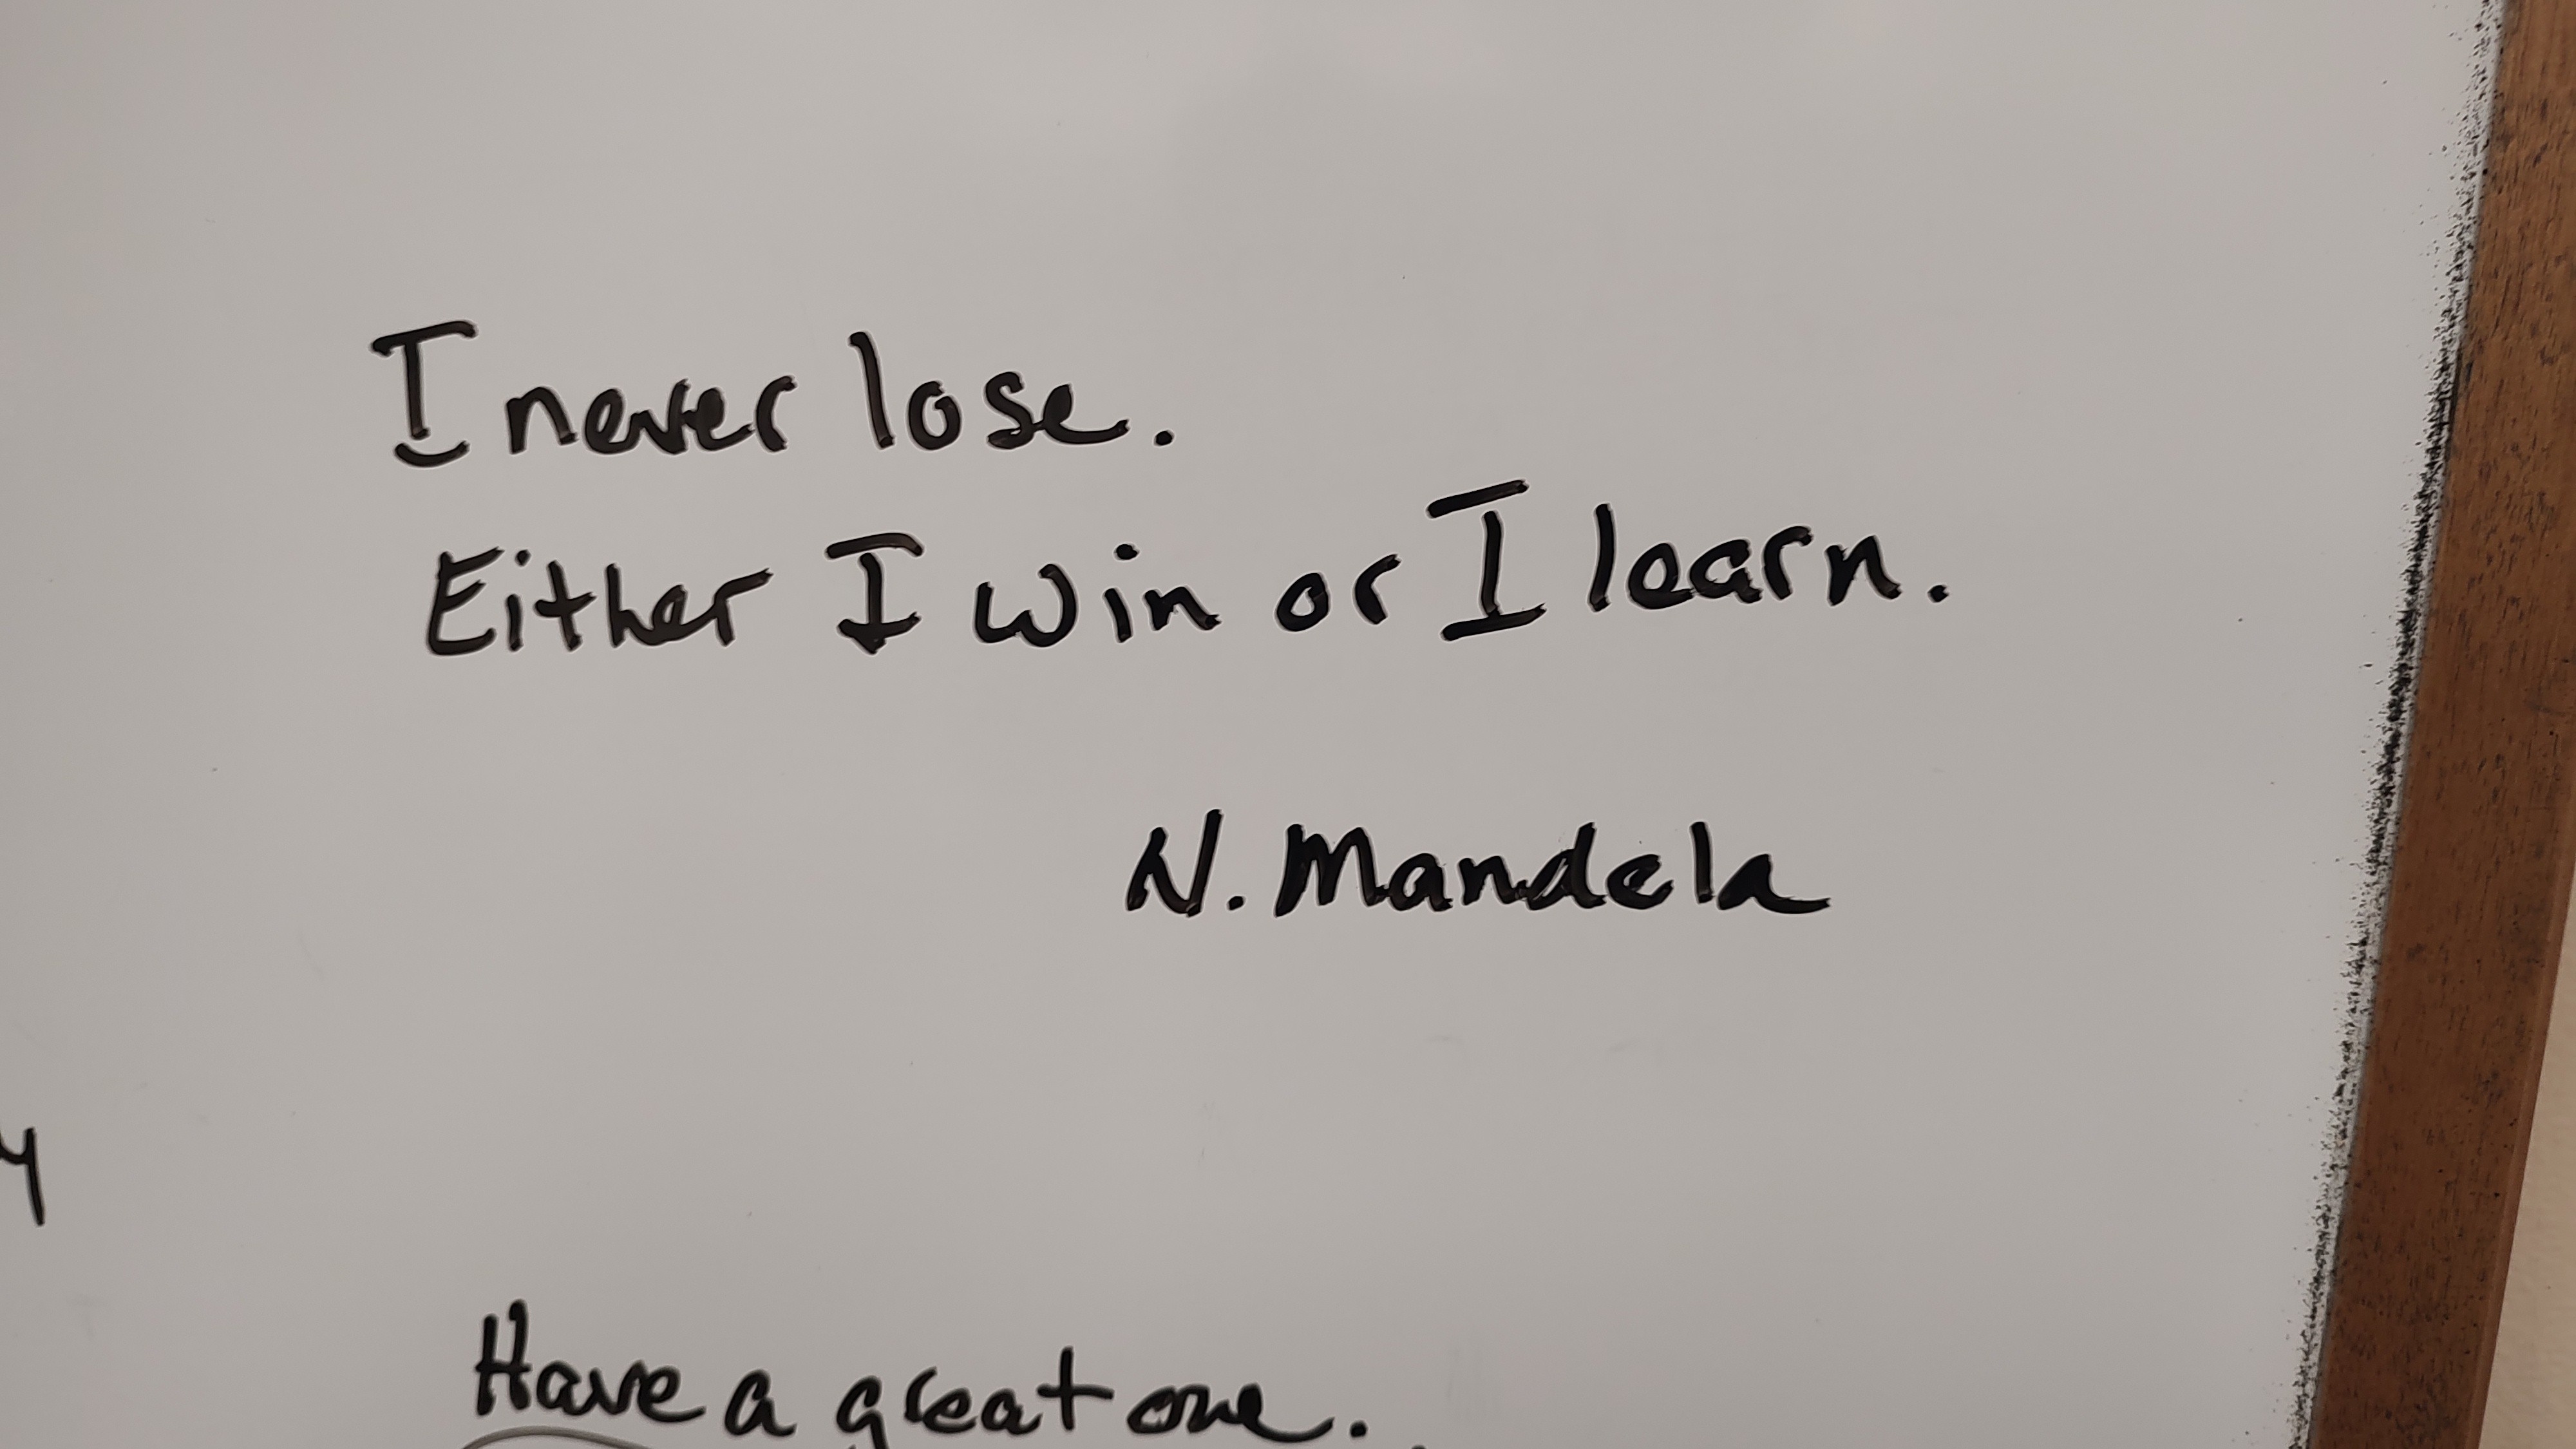 I never lose.
Either I win or I learn.
N. Mandela
y
Have a great one.